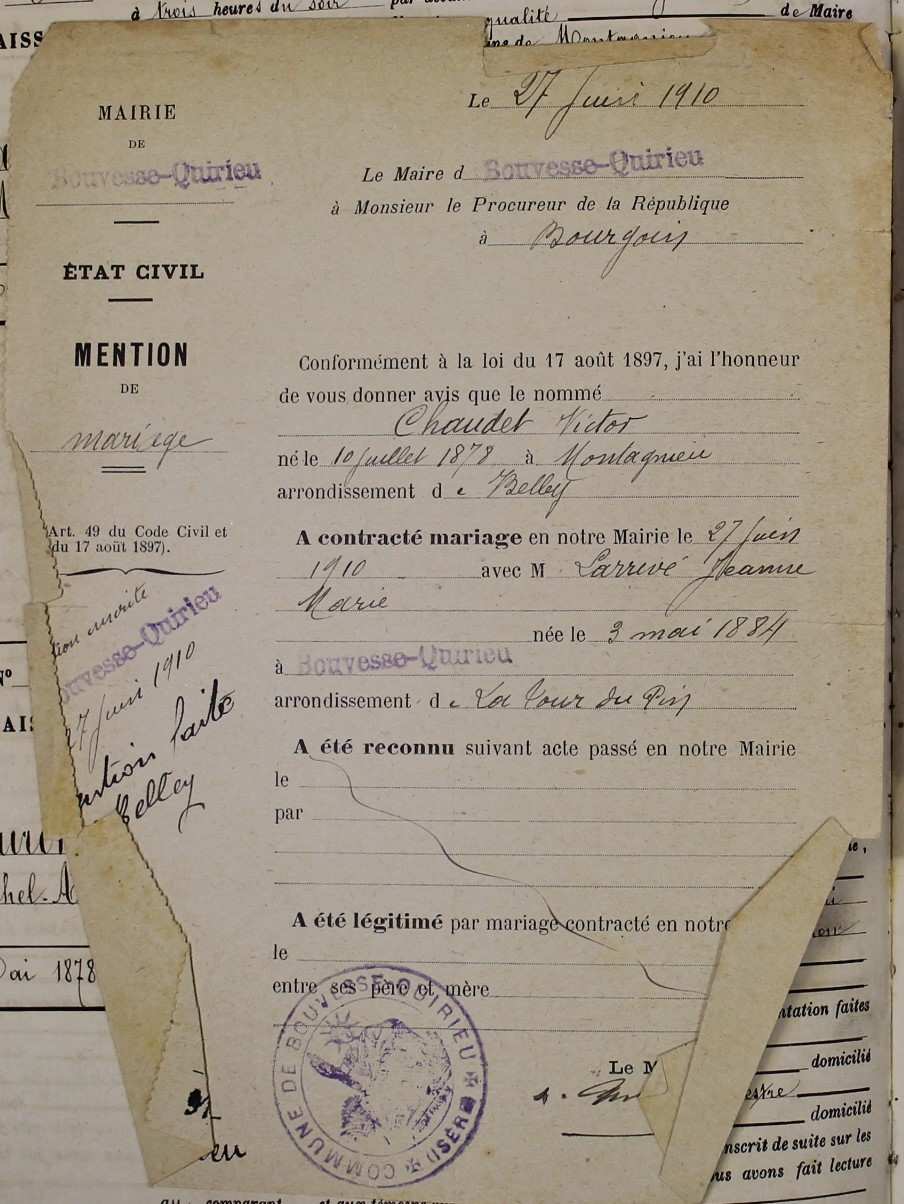 à trois heures du soir
qualité de Maire
AISS
Montagnieu
MAIRIE
DE
Bouvesse-Quirieu
ÉTAT CIVIL
MENTION
DE
mariage
Art. 49 du Code Civil et
du 17 août 1897).
inscrite
Bouvesse-Quirieu
27 Juin 1910
mention faite
Belley
Le 27 Juin 1910
Le Maire d Bouvesse-Quirieu
à Monsieur le Procureur de la République
à Bourgoin
Conformément à la loi du 17 août 1897, j'ai l'honneur
de vous donner avis que le nommé
Chaudet Victor
né le 10 Juillet 1878 à Montagnieu
arrondissement de Belley
A contracté mariage en notre Mairie le 27 Juin
1910 avec M Larrivé Jeanne
Marie
née le 3 mai 1884
à Bouvesse-Quirieu
arrondissement de La Tour du Pin
A été reconnu suivant acte passé en notre Mairie
le
par
A été légitimé par mariage contracté en notre
le
entre ses père et mère
COMMUNE DE BOUVESSE-QUIRIEU (ISÈRE)
Le M
Nº
AIS
hel-A
ai 1878
ntation faites
domicilié
domicilié
nscrit de suite sur les
us avons fait lecture
comparant et aux témoins